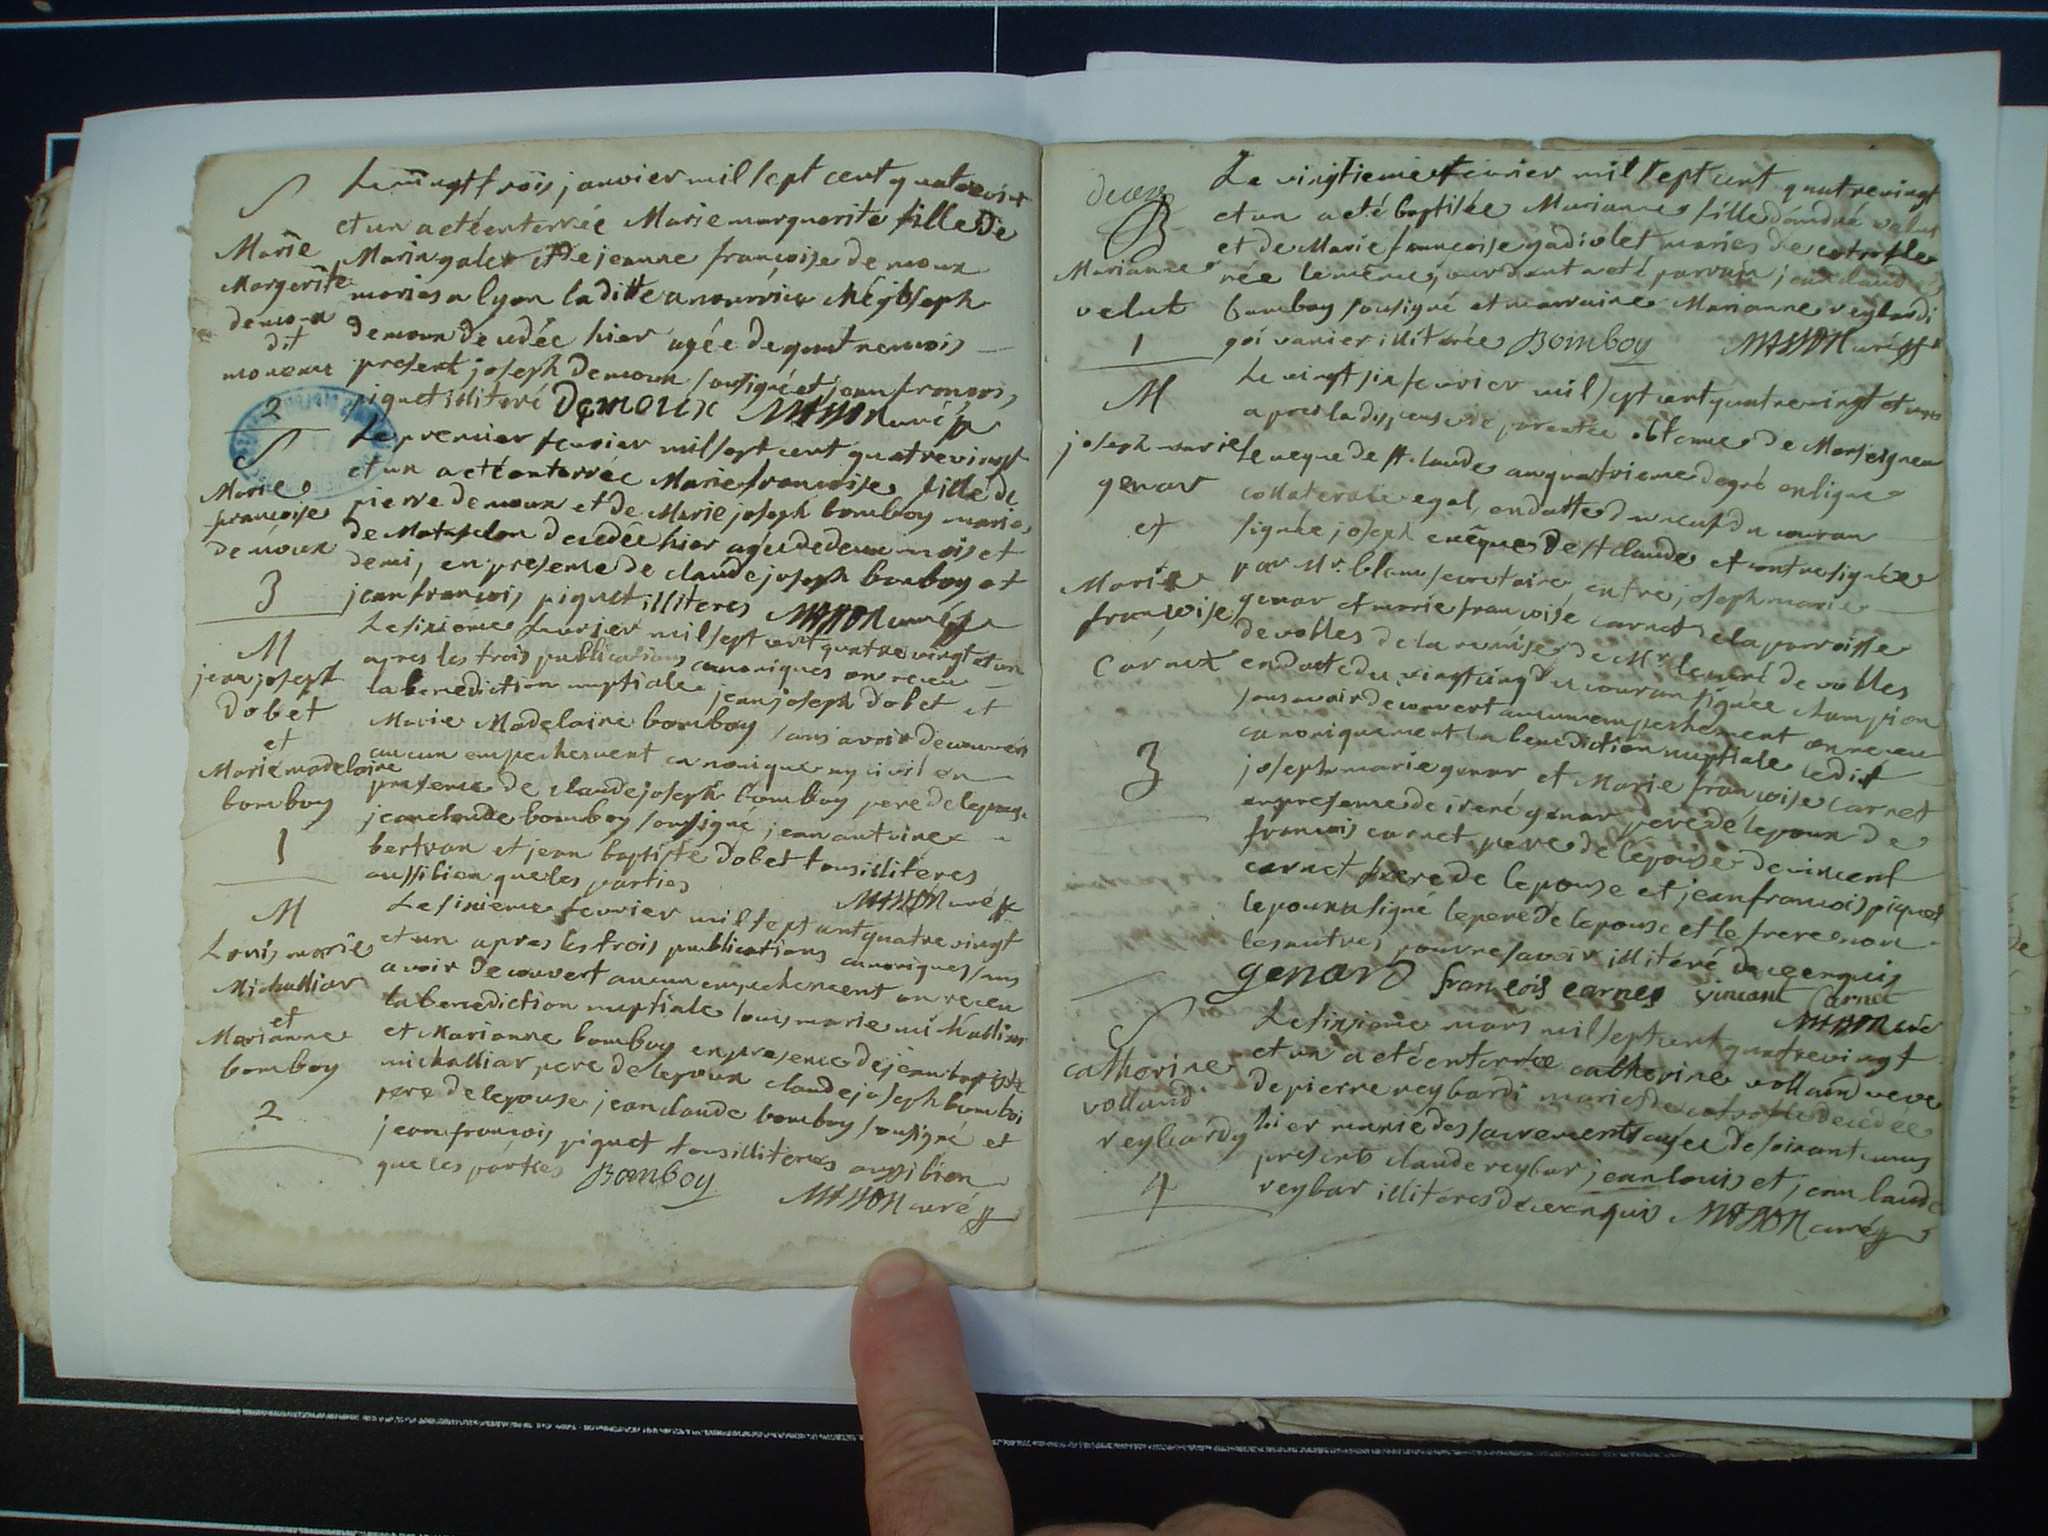 S
Marie
Margerite
demoux
dit
monoux
2
Le vingt trois janvier mil sept cent quatre vint
et un a eté enterrée Marie marguerite fille de
Marin galer et de jeanne françoise demoux
mariés a lyon laditte a nourrice chéz joseph
demoux decedée hier agée de quatre mois
present joseph demoux sousigné et jean françois
piquet illiteré Demoux MASSON curé
S
Marie
françoise
demoux
3
Le premier fevrier mil sept cent quatre vingt
et un a eté enterrée Marie françoise fille de
pierre demoux et de Marie joseph bomboy mariés
de Matafelon decedée hier agée de deux mois et
demi, en presence de claude joseph bomboy et
jean françois piquet illiteres MASSON curé
M
jean joseph
dobet
et
Marie madelaine
bomboy
1
Le sixieme fevrier mil sept cent quatre vingt et un
apres les trois publications canoniques on receu
la benediction nuptiale jean joseph dobet et
Marie Madelaine bomboy sans avoir decouvert
aucun empechement canonique ny civil en
presence de claude joseph bomboy pere de lepouse
jean claude bomboy sousigné jean antoine
bertran et jean baptiste dobet tous illiteres
aussi bien que les parties MASSON curé
M
Louis marie
Michalliar
et
Marianne
bomboy
2
Le sixieme fevrier mil sept cent quatre vingt
et un apres les trois publications canoniques sans
avoir decouvert aucun empechement on receu
la benediction nuptiale louis marie michalliar
et Marianne bomboy en presence de jean baptiste
michalliar pere de lepoux claude joseph bomboi
pere de lepouse jean claude bomboy sousigné et
jean françois piquet tous illiteres aussi bien
que les parties Bomboy MASSON curé
B
Marianne
velut
1
Le vingtieme fevrier mil sept cent quatre vingt
et un a eté baptisée Marianne fille d'andré velut
et de Marie françoise gadiolet mariés de
née le même jour dont a eté parrain jean claude
bomboy sousigné et marraine Marianne reybardi
illiterée Bomboy MASSON curé
M
joseph marie
genar
et
Marie
françoise
Carnet
3
Le vingt six fevrier mil sept cent quatre vingt et un
apres la dispense de parentée obtenue de Monseigneur
leveque de st claude au quatrieme degré en ligne
collaterale egal, en datte du neuf du couran
signée joseph evêque de st claude et contresignée
par Mr. blanc secretaire, entre joseph marie
genar et marie françoise carnet de la parroisse
de volles de la remise de Mr le curé de volles
en datte du vingt cinq du couran signée champion
sans avoir decouvert aucun empechement on receu
canoniquement la benediction nuptiale ledit
joseph marie genar et Marie françoise carnet
en presence de genar pere de lepoux de
françois carnet pere de lepouse de vincent
carnet frere de lepouse et jean françois piquet
lepoux a signé le pere de lepouse et le frere non
les autres pour ne savoir illiteré de ce enquis
genard françois carnes vincent Carnet
MASSON curé
S
catherine
volland
reybardy
4
Le sixieme mars mil sept cent quatre vingt
et un a eté enterrée catherine volland veve
de pierre reybardi mariés de decedée
hier munie des sacrements agée de soixant ans
presents claude reybar jean louis et jean claude
reybar illiteres de ce enquis MASSON curé